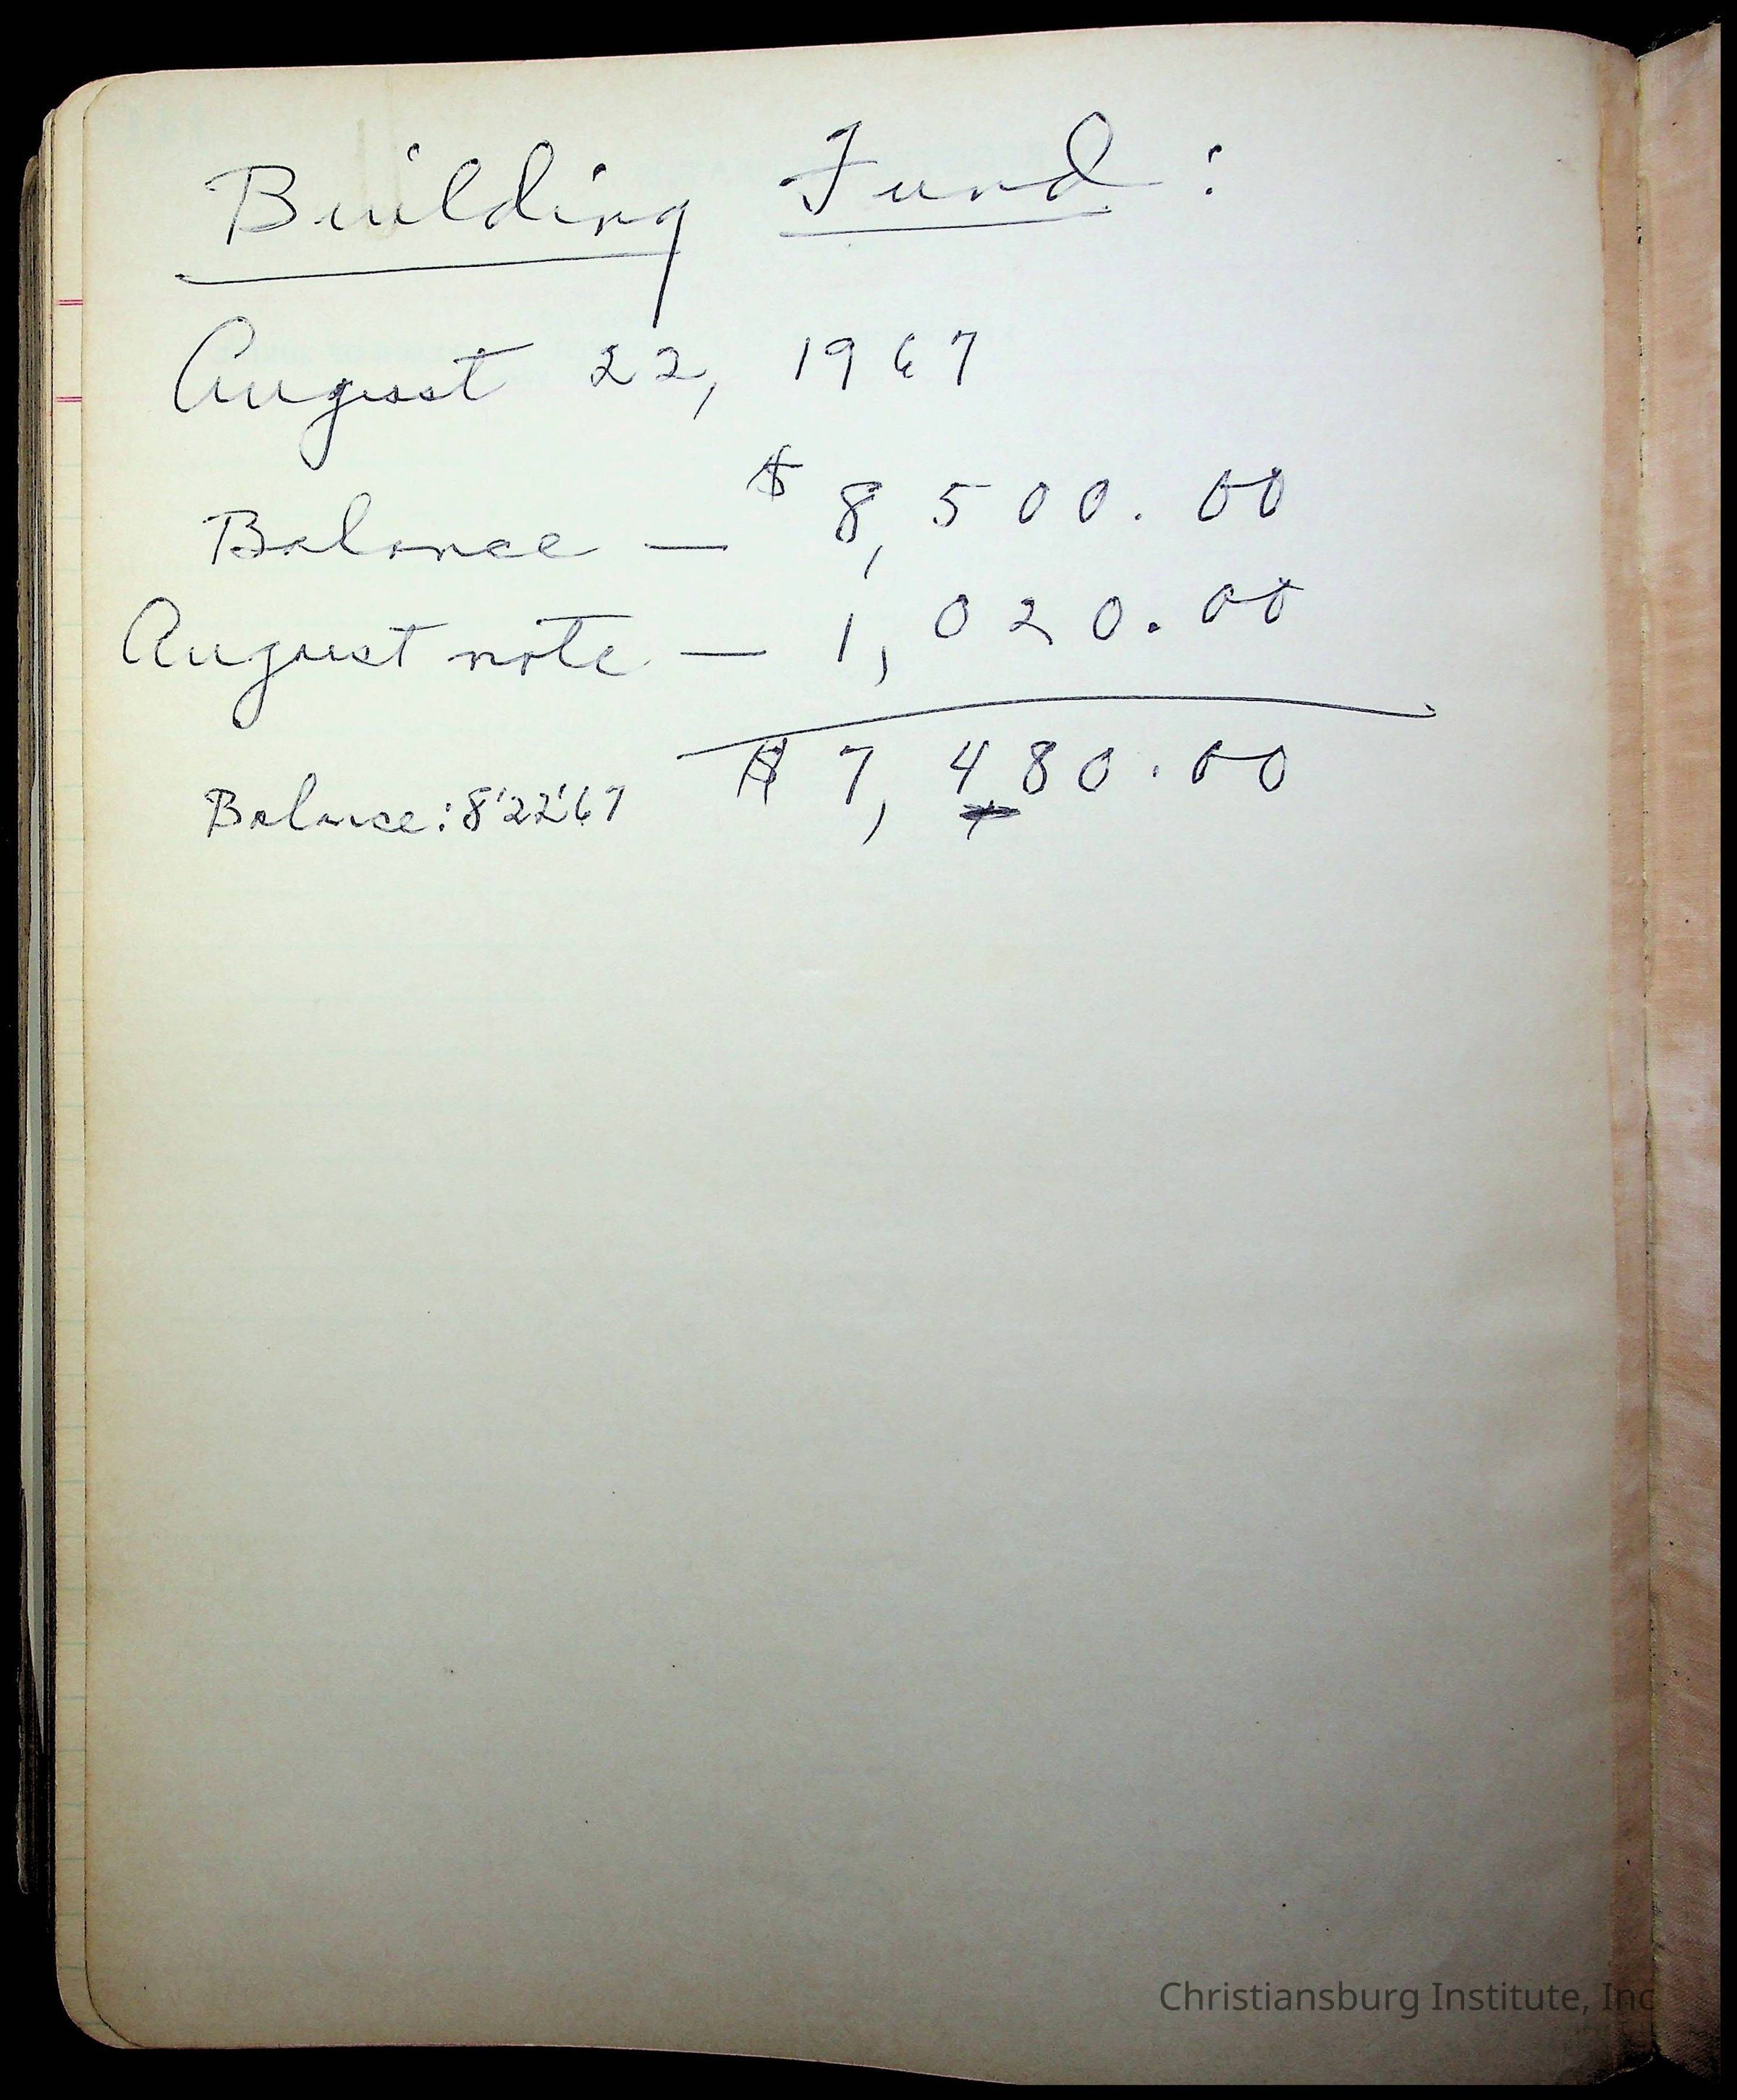 Building Fund:
August 22, 1967
Balance — $ 8,500.00
August note — 1,020.00
Balance: 8'22'67 $ 7,480.00
Christiansburg Institute, Inc